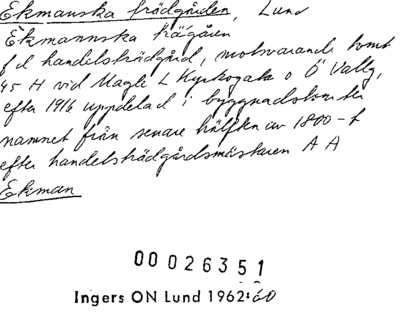 Ekmanska trädgården, Lund
Ekmannska trägåren
f d handelsträdgård, motsvarande tomt
45 H vid Magle L Kyrkogata o Ö Vallg,
efter 1916 uppdelad i byggnadstomter
namnet från senare hälften av 1800-t
efter handelsträdgårdsmästaren A A
Ekman
00 026351
Ingers ON Lund 1962:60